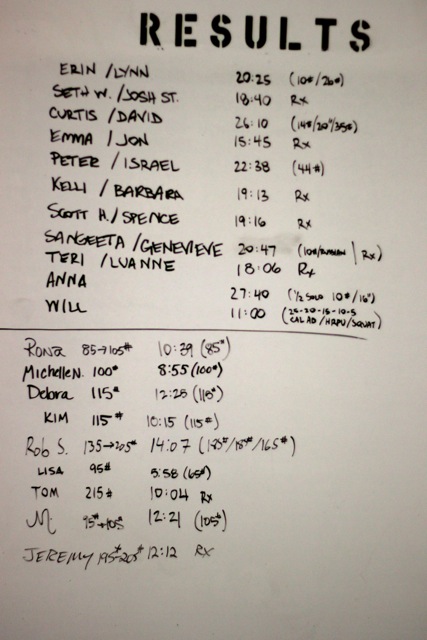 RESULTS
ERIN / LYNN 20:25 (10#/26#)
SETH W. / JOSH ST. 18:40 Rx
CURTIS / DAVID 26:10 (14#/20"/35#)
EMMA / JON 15:45 Rx
PETER / ISRAEL 22:38 (44#)
KELLI / BARBARA 19:13 Rx
SCOTT H. / SPENCE 19:16 Rx
SANGEETA / GENEVIEVE 20:47 (10#/RUSSIAN | Rx)
TERI / LUANNE 18:06 Rx
ANNA 27:40 (1/2 SOLO 10#/16")
WILL 11:00 (25-20-15-10-5
CAL AD/HRPU/SQUAT)
Rona 85→105# 10:39 (85#)
Michelle N. 100# 8:55 (100#)
Debora 115# 12:28 (115#)
KIM 115# 10:15 (115#)
Rob S. 135→205# 14:07 (185#/165#)
LISA 95# 5:58 (65#)
TOM 215# 10:04 Rx
M. 95#→105# 12:21 (105#)
JEREMY 195#-205# 12:12 RX